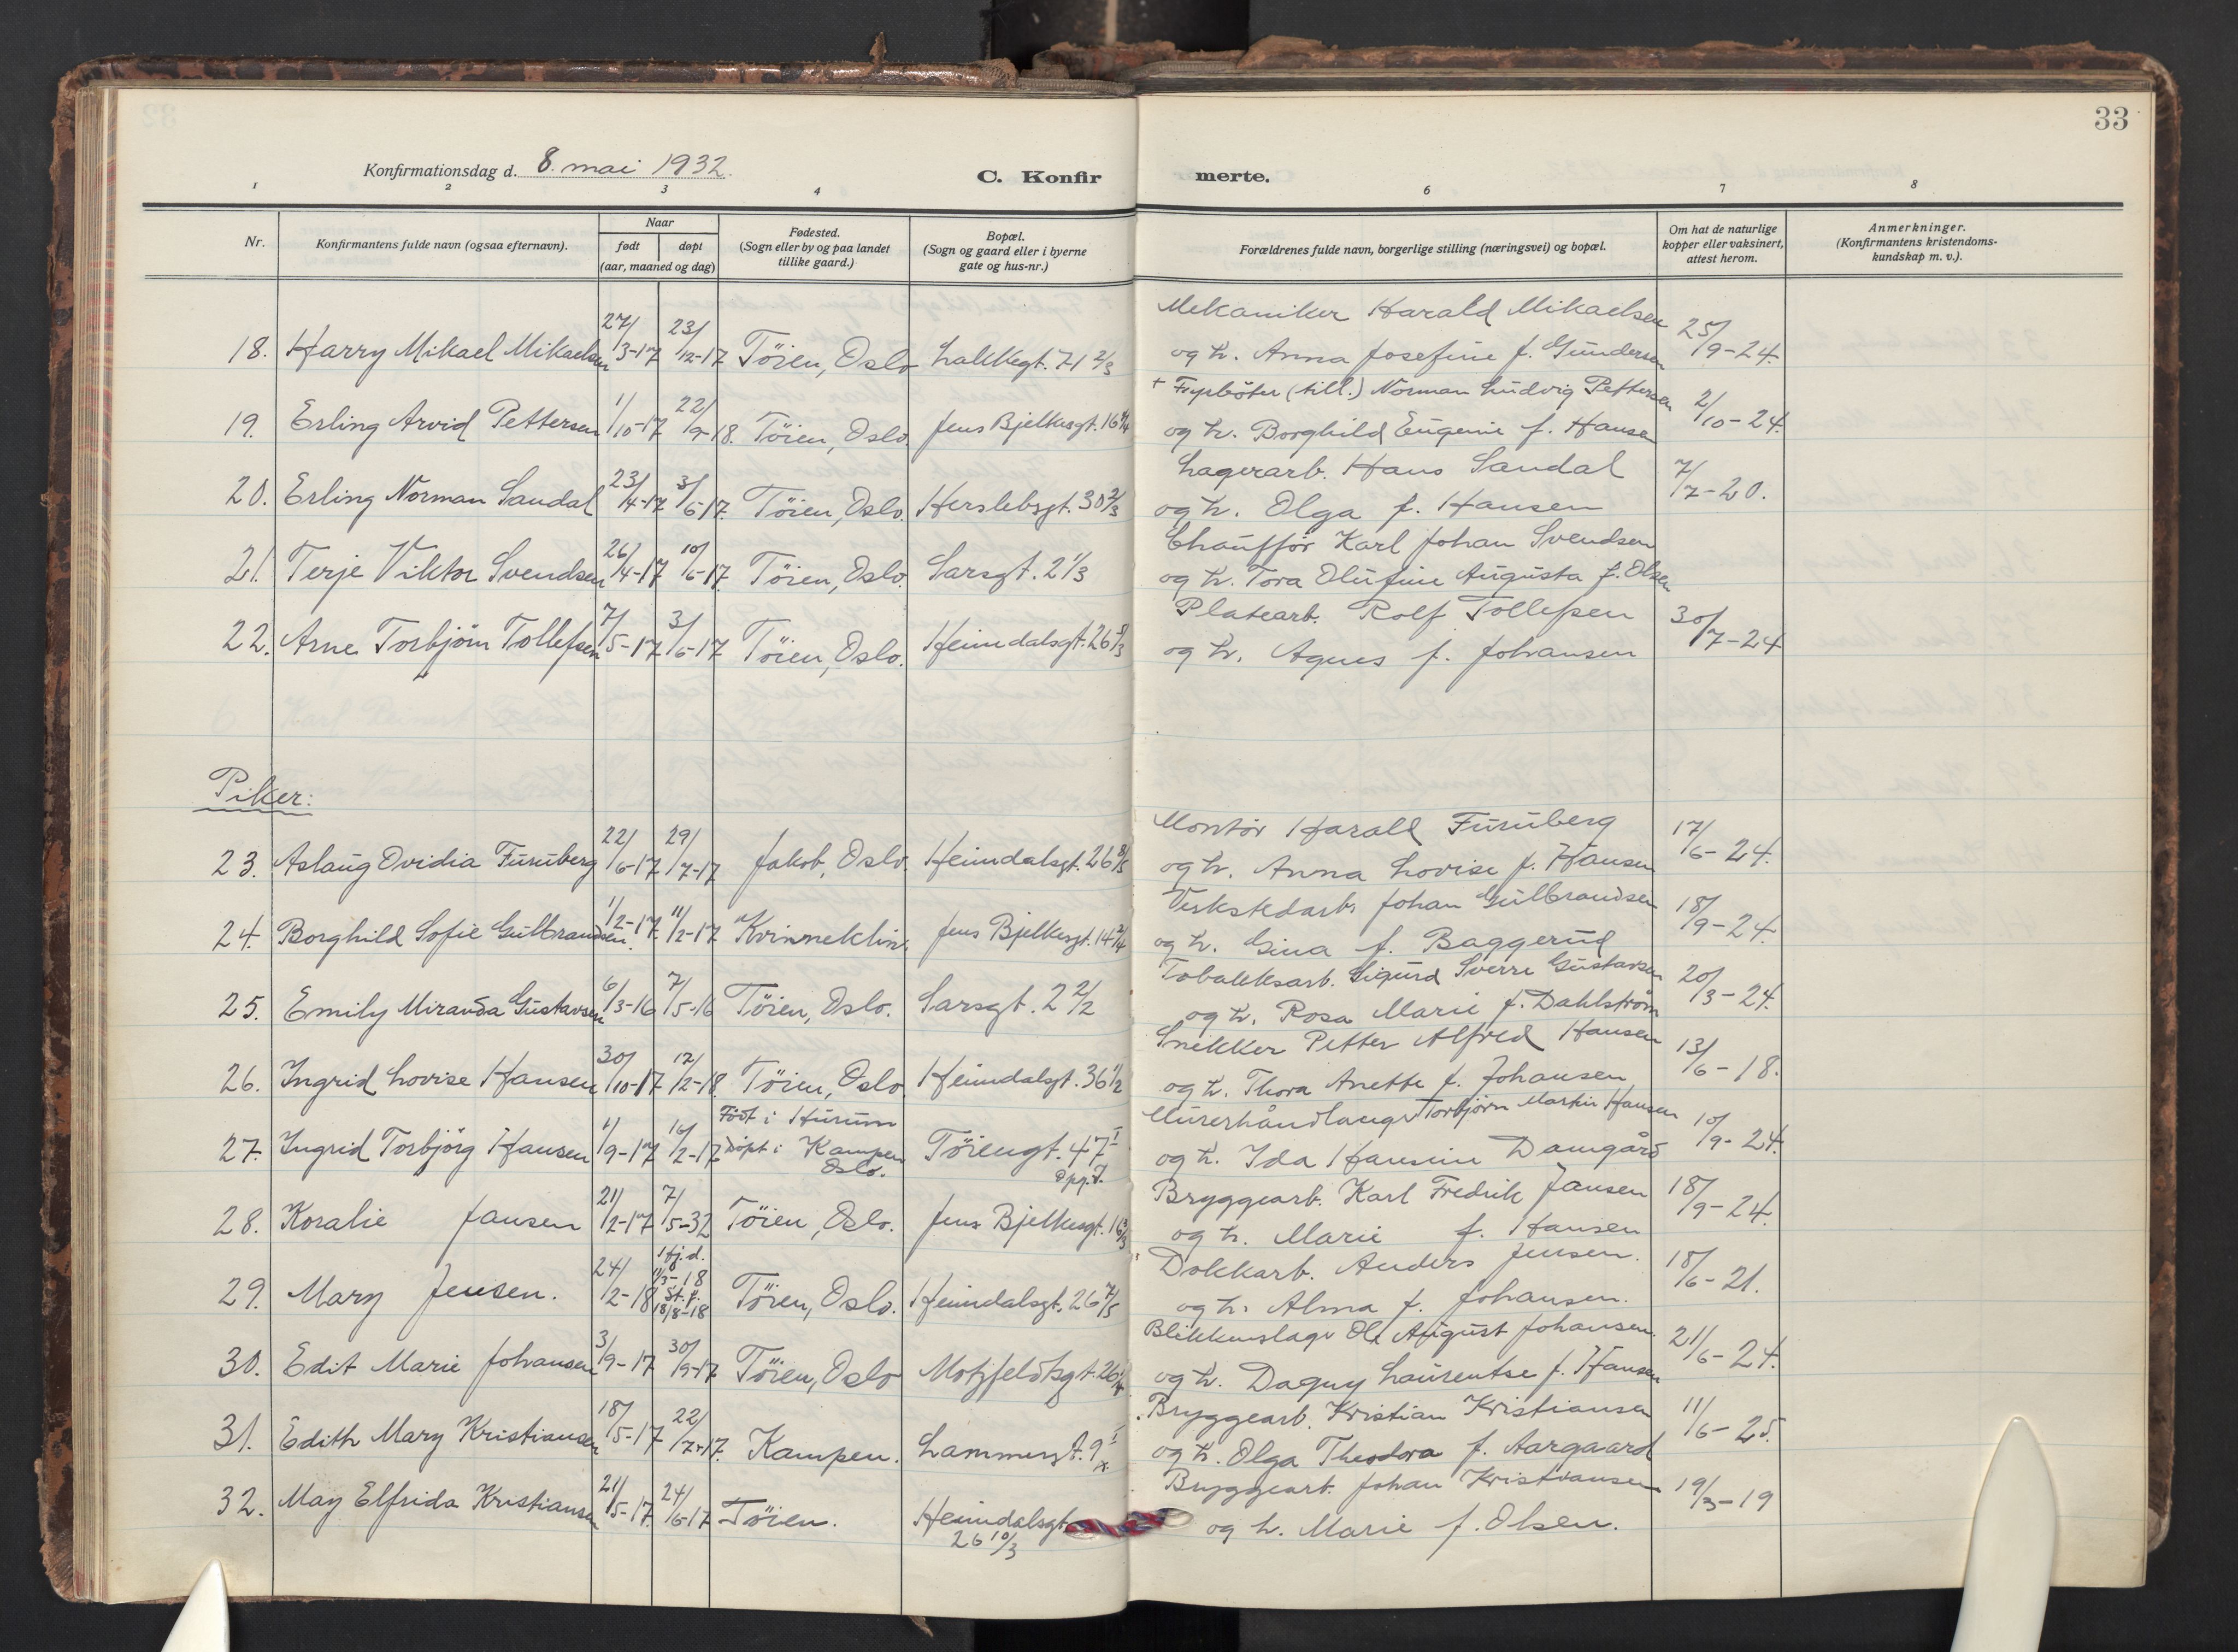 33
Konfirmationsdag d. 8. mai 1932.
C. Konfir
merte.
1 2 3 4 6 7 8
Nr.
Konfirmantens fulde navn (ogsaa efternavn).
Naar
født døpt
(aar, maaned og dag)
Fødested.
(Sogn eller by og paa landet
tillike gaard.)
Bopæl.
(Sogn og gaard eller i byerne
gate og hus-nr.)
Forældrenes fulde navn, borgerlige stilling (næringsvei) og bopæl.
Om hat de naturlige
kopper eller vaksinert,
attest herom.
Anmerkninger.
(Konfirmantens kristendoms-
kundskap m. v.).
18. Harry Mikael Mikaelsen 27/3-17 23/12-17 Töien, Oslo Lakkegt. 71 2/3
Mekaniker Harald Mikaelsen
og h. Anna Josefine f. Gundersen 25/9-24.
19. Erling Arvid Pettersen 1/10-17 22/9-18. Töien, Oslo. Jens Bjelkesgt. 16
+ Fyrböter (till.) Norman Ludvig Pettersen
og h. Borghild Eugenie f. Hansen 2/10-24.
20. Erling Norman Sandal 23/4-17 3/6-17. Töien, Oslo. Herslebsgt. 30 2/3
Lagerarb. Hans Sandal
og h. Olga f. Hansen 7/7-20.
21. Terje Viktor Svendsen 26/4-17 10/6-17. Töien, Oslo. Sarsgt. 2 1/3
Chaufför Karl Johan Svendsen
og h. Tora Olufine Augusta f. Olsen
22. Arne Torbjörn Tollefsen 7/5-17 3/6-17 Töien, Oslo. Heimdalsgt. 26
Platearb. Rolf Tollefsen
og h. Agnes f. Johansen 30/7-24
Piker:
23. Aslaug Ovidia Furuberg 22/6-17 29/7-17 Jakob, Oslo. Heimdalsgt. 26 8/5
Montör Harald Furuberg
og h. Anna Lovise f. Hansen 17/6-24.
24. Borghild Sofie Gulbrandsen. 1/2-17. 11/2-17 Kvinneklin. Jens Bjelkesgt. 14 2/4
Verkstedarb. Johan Gulbrandsen
og h. Gina f. Baggerud 18/9-24.
25. Emily Miranda Gustavsen 6/3-16 7/5-16 Töien, Oslo. Sarsgt. 2 2/2
Tobakksarb. Sigurd Sverre Gustavsen
og h. Rosa Marie f. Dahlström 20/3-24.
26. Ingrid Lovise Hansen 30/10-17 17/2-18. Töien, Oslo. Heimdalsgt. 36 1/2
Snekker Petter Alfred Hansen
og h. Thora Anette f. Johansen 13/6-18.
27. Ingrid Torbjörg Hansen 1/9-17 16/2-17 Födt i Hurum
döpt i Kampen
Oslo. Töiengt. 47 I
Opg. I.
Murerhåndlanger Torbjörn Martin Hansen
og h. Ida Hansine Damgård 10/9-24.
28. Koralie Jansen 21/2-17 7/5-32 Töien, Oslo. Jens Bjelkesgt. 16 3/3
Bryggearb. Karl Fredrik Jansen
og h. Marie f. Hansen 18/9-24.
29. Mary Jensen. 24/2-18 Hj.d.
11/3-18
St. f.
18/8-18 Töien, Oslo. Heimdalsgt. 26 7/5
Dokkarb. Anders Jensen.
og h. Alma f. Johansen. 18/6-21.
30. Edit Marie Johansen 3/9-17 30/9-17 Töien, Oslo Motzfeldtsgt. 26
Blikkenslager Ole August Johansen.
og h. Dagny Laurentse f. Hansen 21/6-24.
31. Edith Mary Kristiansen 18/5-17 22/7-17. Kampen. Lammersgt. 9 I
Bryggearb. Kristian Kristiansen
og h. Olga Theodora f. Aargaard 11/6-25.
32. May Elfrida Kristiansen 21/5-17. 24/6-17 Töien. Heimdalsgt.
26 10/3
Bryggearb. Johan Kristiansen
og h. Marie f. Olsen. 19/3-19